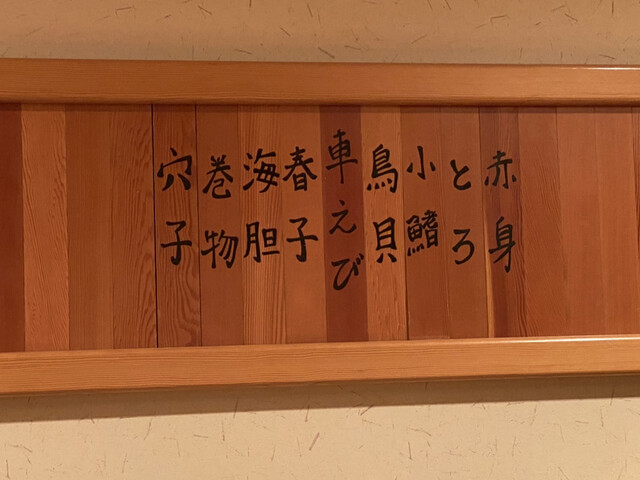 赤身
とろ
小鰭
鳥貝
車えび
春子
海胆
巻物
穴子